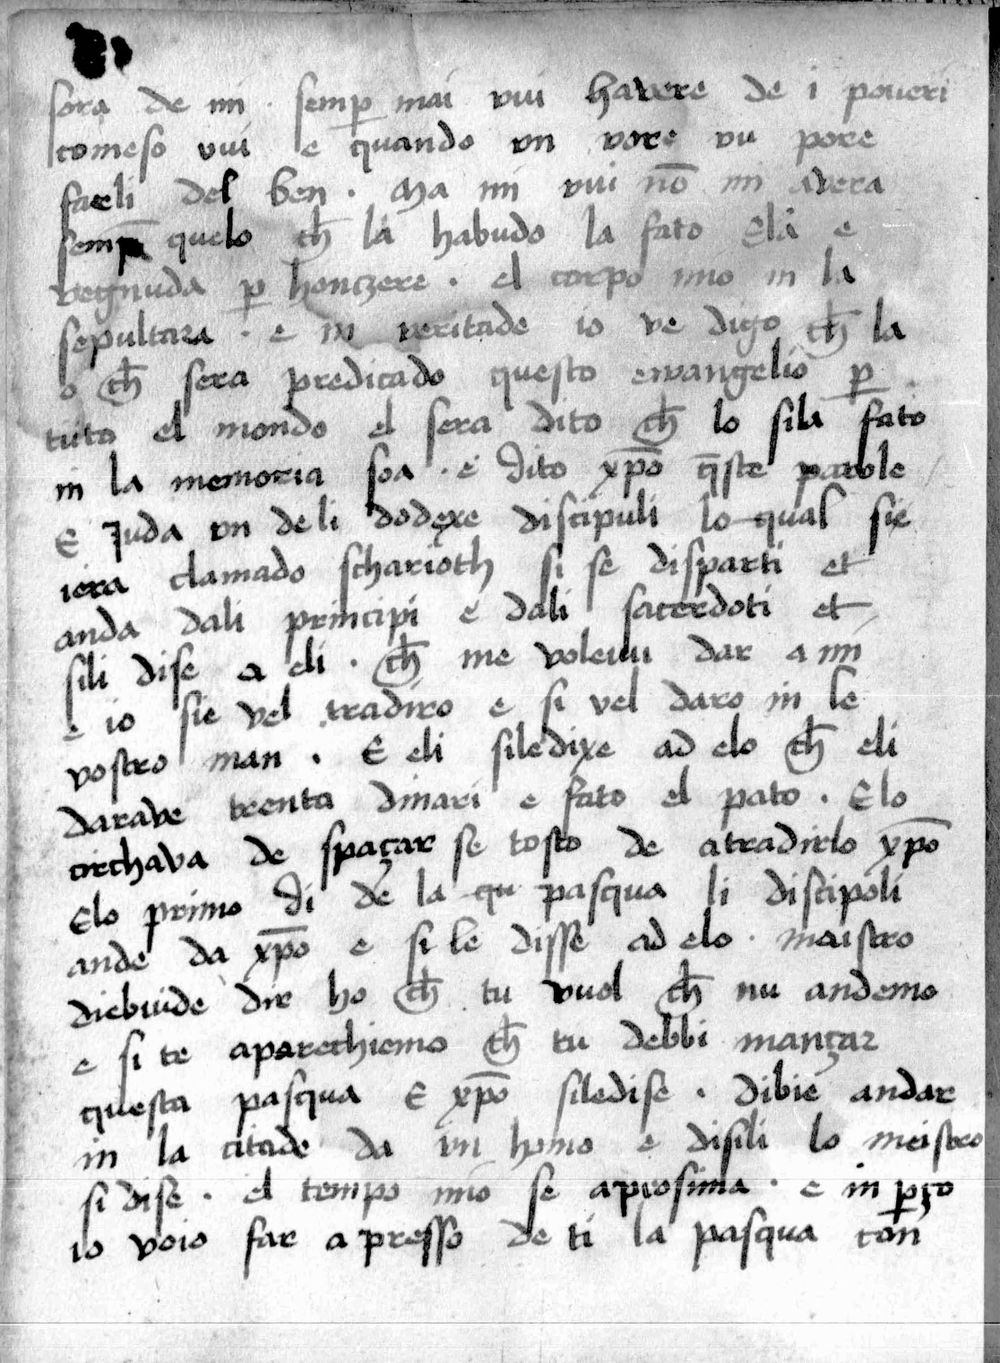 sora de mi · semp̱ mai vui havere de i poveri
comeso vui e quando vn vore vu pore
faeli del ben · Ma mi vui nō mi avera
semp̱ quelo ch̄ la habudo la fato Ela e
vegnuda p̱ honczere · el corpo mio in la
sepultara · e in veritade io ve digo ch̄ la
o ch̄ sera predicado questo ewangelio p̱
tuto el mondo el sera dito ch̄ lo sila fato
in la memoria soa · e dito xp̄o q̄ste parole /
E Juda vn de li dodexe discipuli lo qual sie
iera clamado scharioth si se disparti et
anda dali principi e dali sacerdoti et
sili dise a eli · ch̄ me volevu dar a mi
e io sie vel tradiro e si vel daro in le
vostro man · E eli siledixe ad elo ch̄ eli
darave trenta dinari e fato el pato · Elo
circhava de spaçar se tosto de atradirlo xp̄o
Elo primo di de la qu pasqua li discipoli
ande da xp̄o e si le disse ad elo · maistro
diebiude dir ho ch̄ tu vuol ch̄ nu andemo
e si te aparechiemo ch̄ tu debbi mançar
questa pasqua E xp̄o siledise · dibie andar
in la citade da un homo e disili lo meistro
si dise · el tempo mio se aprosima · e in p̱ço
io voio far apresso de ti la pasqua con